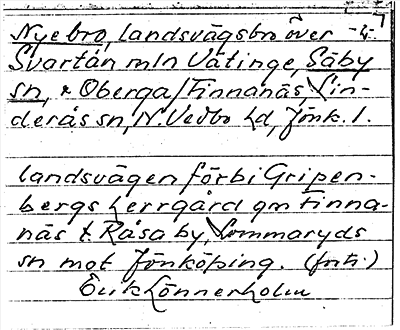 Nyebro, landsvägsbro över -4-
Svartån mln Vätinge, Säby
sn, & Oberga/Finnanäs, Lin-
deråssn, N. Vedbo hd, Jönk. l.
landsvägen förbi Gripen-
bergs herrgård gm Finna-
näs t. Råsa by, Lommaryds
sn mot Jönköping. (forts.)
Erik Lönnerholm